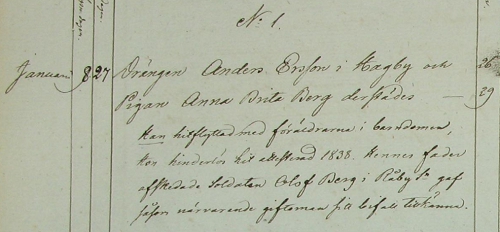 N: 1.
Januari 8 27 Drängen Anders Ersson i Hagby och 26
Pigan Anna Brita Berg derstädes — 29
Han hitflyttad med föräldrarna i barndomen,
Hon hit 1838. Hennes fader
afskedade Soldaten Olof Berg i Råby gaf
såsom närvarande giftoman sitt bifall tillkänna.